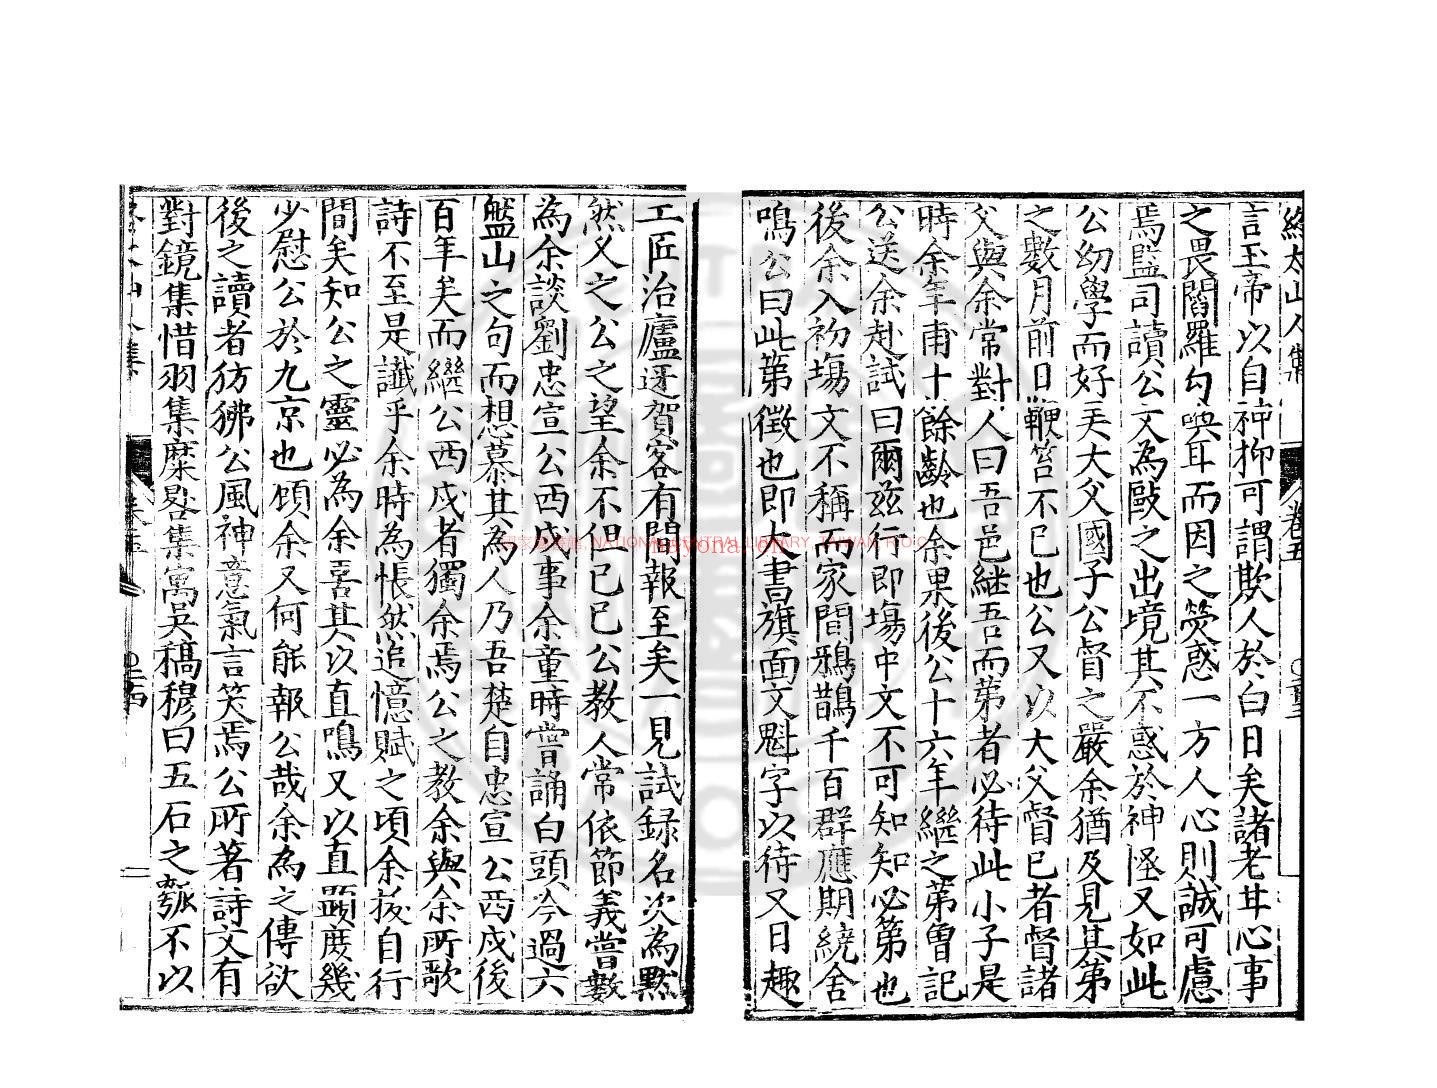 終太山人集 卷五
言玉帝以自神抑可謂欺人於白日矣諸老其心事
之畏閻羅勾喚耳而因之熒惑一方人心則誠可慮
焉監司讀公文為敺之出境其不惑於神怪又如此
公幼學而好弄大父國子公督之嚴余猶及見其第
之數月前日鞭笞不已也公又以大父督已者督諸
父與余常對人曰吾邑継吾而第者必待此小子是
時余年甫十餘齡也余果後公十六年繼之第曾記
公送余赴試曰爾茲行即塲中文不可知知必第也
後余入初塲文不稱而家間鴉鵲千百群應期繞舍
鳴公曰此第徵也即大書旗面文魁字以待又日趣
工匠治廬迓賀客有間報至矣一見試録名次為黙
然又之公之望余不但已已公教人常依節義嘗數
為余談劉忠宣公西戍事余童時嘗誦白頭今過六
盤山之句而想慕其為人乃吾楚自忠宣公西戍後
百年矣而繼公西戍者獨余焉公之教余與余所歌
詩不至是讖乎余時為悵然追憶賦之頃余投自行
間矣知公之靈必為余喜其以直鳴又以直顯庶幾
少慰公於九京也傾余又何能報公哉余為之傳欲
後之讀者彷彿公風神意氣言笑焉公所著詩文有
對鏡集惜羽集糜畧集寓吳稿穆曰五石之瓠不以
卷五